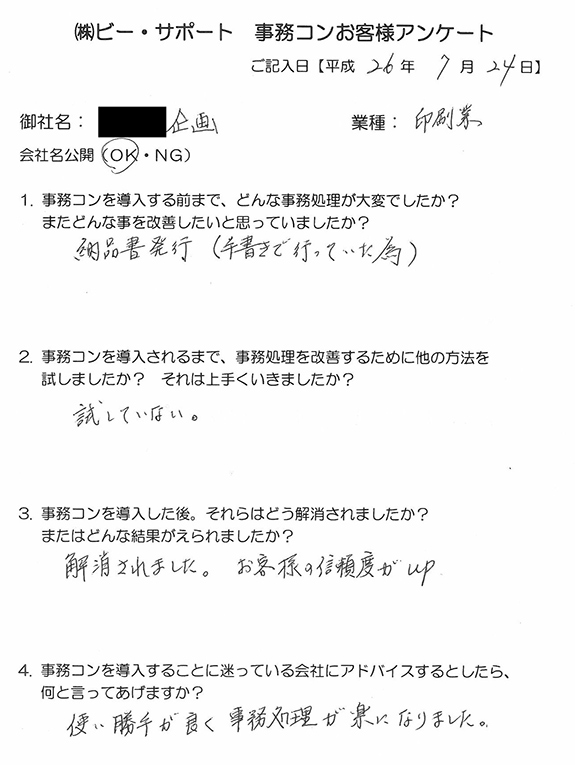 ㈱ビー・サポート 事務コンお客様アンケート
ご記入日【平成 26年 7月 24日】
御社名： 企画 業種： 印刷業
会社名公開（OK・NG）
1. 事務コンを導入する前まで、どんな事務処理が大変でしたか？
またどんな事を改善したいと思っていましたか？
納品書発行（手書きで行っていた為）
2. 事務コンを導入されるまで、事務処理を改善するために他の方法を
試しましたか？ それは上手くいきましたか？
試していない。
3. 事務コンを導入した後。それらはどう解消されましたか？
またはどんな結果がえられましたか？
解消されました。 お客様の信頼度がup
4. 事務コンを導入することに迷っている会社にアドバイスするとしたら、
何と言ってあげますか？
使い勝手が良く事務処理が楽になりました。